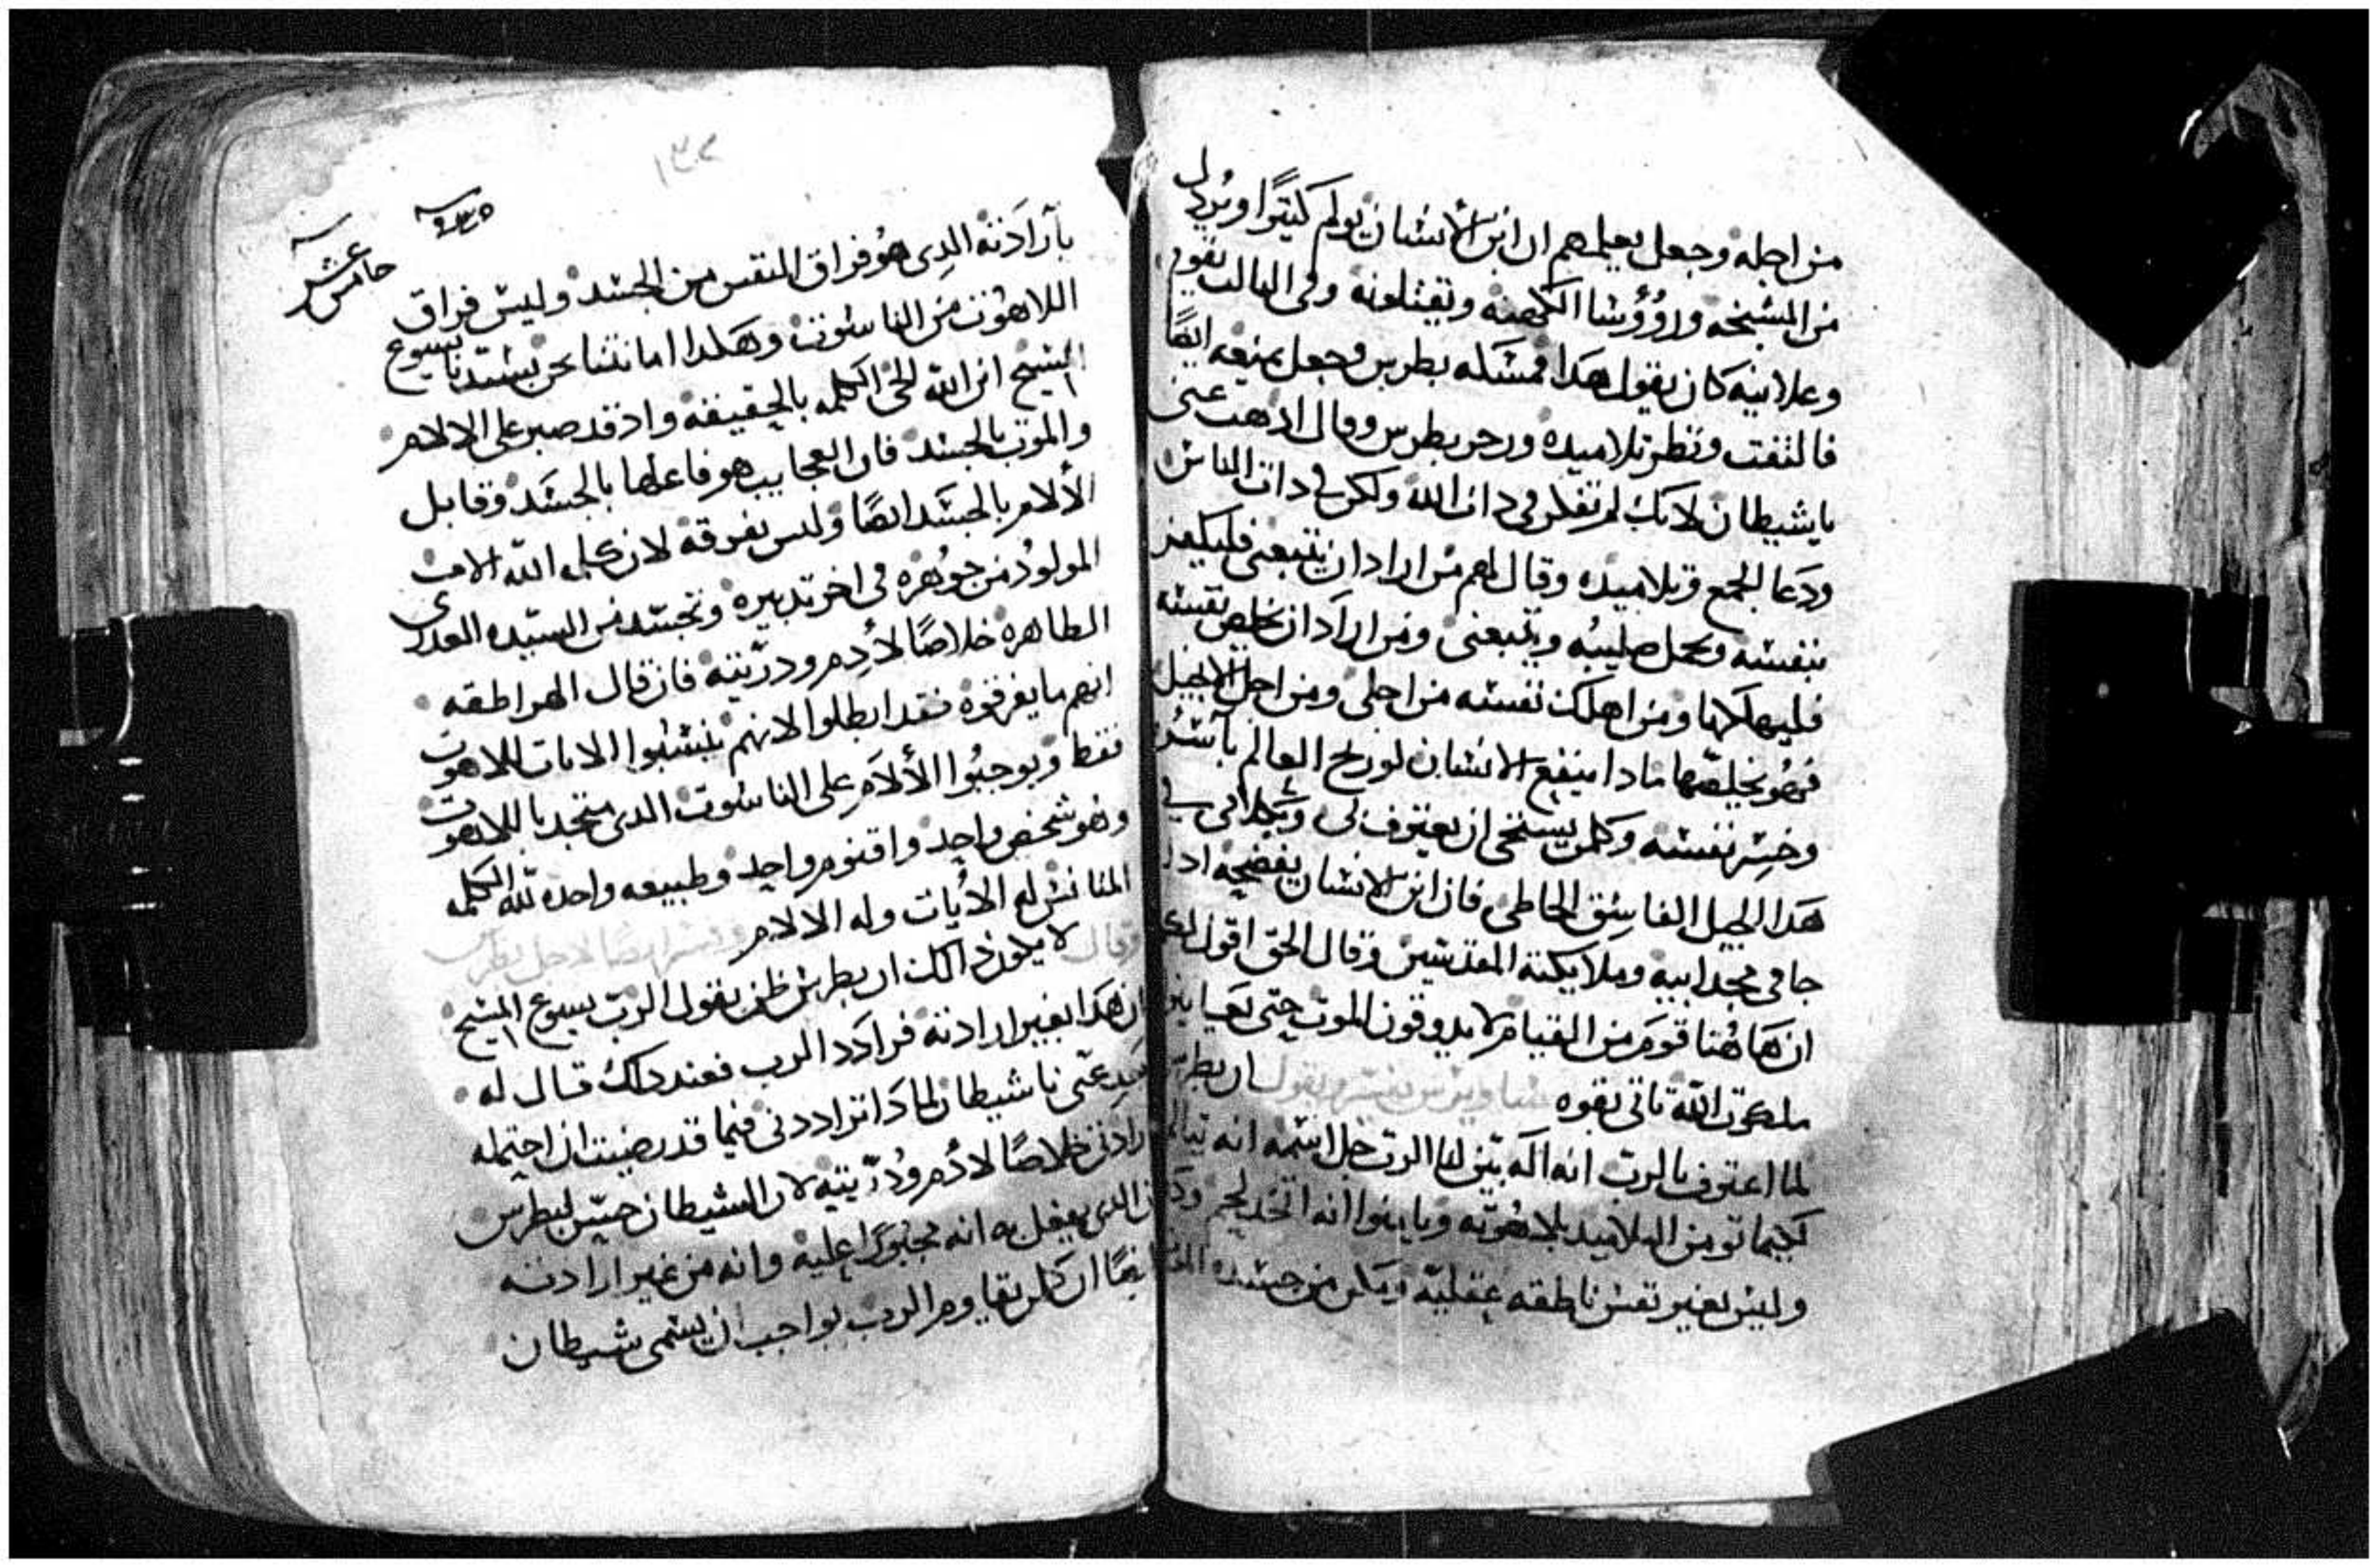 من اجله وجعل يعلمهم ان ابن الانسان يولم كثيرًا ويرذل
من المشيخه ورؤوسا الكهنه ويقتلونه وفي التالت يقوم
وعلانيه كان يقول هدا فمسكه بطرس وجعل يمنعه ايضًا
فالتفت ونظر تلاميده وزجر بطرس وقال ادهب عني
يا شيطان لانك لم تفكر في دات الله ولكن في دات الناس
ودعا الجمع وتلاميده وقال لهم من اراد ان يتبعني فليكفر
بنفسه ويحمل صليبه ويتبعني ومن اراد ان يخلص نفسه
فليهلكها ومن اهلك نفسه من اجلي ومن اجل الانجيل
فهو يخلصها مادا ينفع الانسان لو ربح العالم باسره
وخسر نفسه وكلمن يستحي ان يعترف بي وبكلامي في
هدا الجيل الفاسق الخاطي فان ابن الانسان يفضحه ادا
جا في مجد ابيه وملايكته المقدسين وقال الحق اقول لكم
ان هاهنا قوم من القيام لا يدوقون الموت حتى يعاينوا
ملكوت الله تاتي بقوه ساويرس يفسر ويقول ان بطرس
لما اعترف بالرب انه اله بين لنا الرب جل اسمه انه
كيما تومن التلاميد بلاهوته ويابنوا انه اتخد لحم ودم
وليس بغير نفس ناطقه عقليه ويكن من جسده
١٣٢
خامس عشر
بارادته الدي هو فراق النفس من الجسد وليس فراق
اللاهوت من الناسوت وهكدا امانتنا نحن بسيدنا يسوع
المسيح ابن الله الحي الكلمه بالحقيقه واد قد صبر على الالام
والموت بالجسد فان العجايب هو فاعلها بالجسد وقابل
الالام بالجسد ايضًا وليس تفرقه لان كلمه الله الاب
المولود من جوهره في اخر تدبيره وتجسد من السيده العدرى
الطاهره خلاصًا لادم ودريته فان قال الهراطقه
انهم ما يفرقوه فقد ابطلوا لانهم ينسبوا الايات للاهوت
فقط ويوجبوا الالام على الناسوت الدي متحد باللاهوت
وهو شخص واحد واقنوم واحد وطبيعه واحده لله الكلمه
المتانس له الايات وله الالام وفسر ايضا لاجل بطرس
وقال لا يكون دالك ان بطرس ظن بقول الرب يسوع المسيح
ان هدا بغير ارادته فرادد الرب فعند داك قال له
عني يا شيطان لمادا ترادني فيما قد رضيت ان احتمله
خلاصًا لادم ودريته لان الشيطان حسن لبطرس
الدي يفعل به انه مجبورًا عليه وانه من غير ارادته
ايضًا ان كلمن يقاوم الرب بواجب ان يسمى شيطان